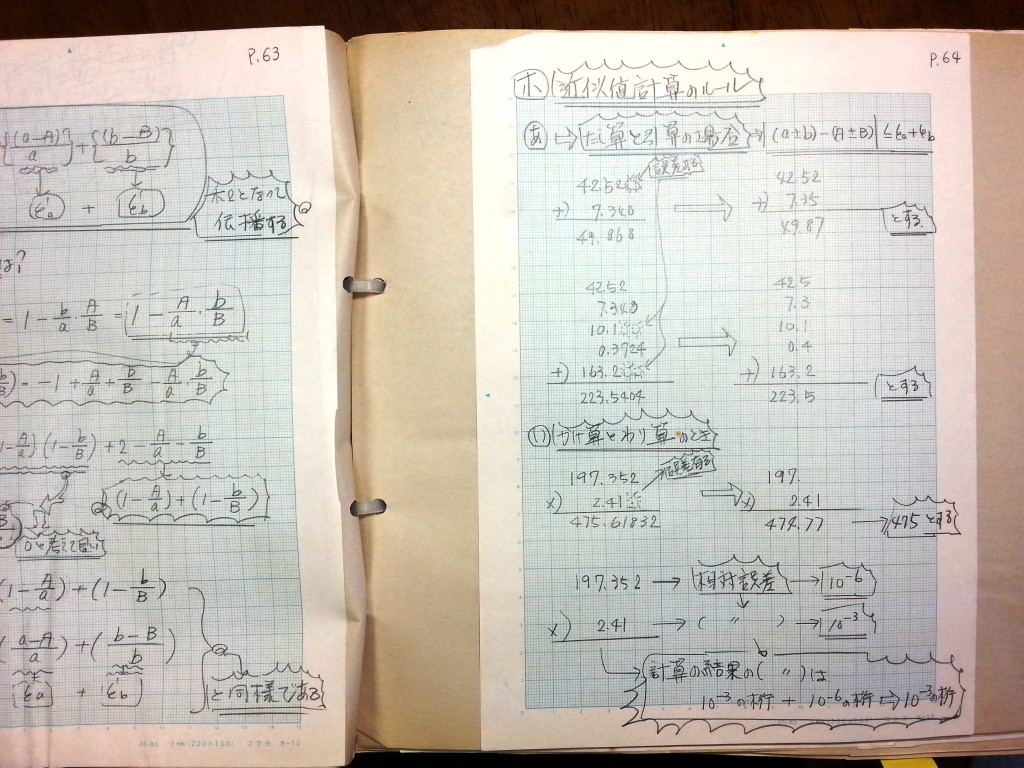 P.63
{(a-A)/a} + {(b-B)/b}
εa' + εb'
和となって
伝播する
は?
= 1 - b/a · A/B = 1 - A/a · b/B
= -1 + A/a + b/B - A/a · b/B
(1-A/a)(1-b/B) + 2 - A/a - b/B
(1-A/a) + (1-b/B)
0と考えて
(1-A/a) + (1-b/B)
(a-A/a) + (b-B/b)
εa' + εb'
と同様である
P.64
ホ 近似値計算のルール
あ → たし算とひき算の場合 → |(a±b)-(A±B)| ≦ εa+εb
誤差有る
42.52
+) 7.348
49.868
⇒
42.52
+) 7.35
49.87
とする
42.52
7.348
10.1
0.3724
+) 163.2
223.5404
⇒
42.5
7.3
10.1
0.4
+) 163.2
223.5
とする
い かけ算とわり算のとき
誤差有る
197.352
x) 2.41
475.61832
⇒
197.
x) 2.41
474.77 → 475とする
197.352 → 相対誤差 → 10⁻⁶
x) 2.41 → ( 〃 ) → 10⁻³
計算の結果の( 〃 )は
10⁻³の桁 + 10⁻⁶の桁 ⇒ 10⁻³の桁